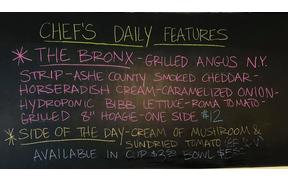 CHEF'S DAILY FEATURES
* THE BRONX - GRILLED ANGUS N.Y.
STRIP - ASHE COUNTY SMOKED CHEDDAR -
HORSERADISH CREAM - CARAMELIZED ONION -
HYDROPONIC BIBB LETTUCE - ROMA TOMATO -
GRILLED 8" HOAGIE - ONE SIDE $12
* SIDE OF THE DAY - CREAM OF MUSHROOM &
SUNDRIED TOMATO
AVAILABLE IN CUP BOWL